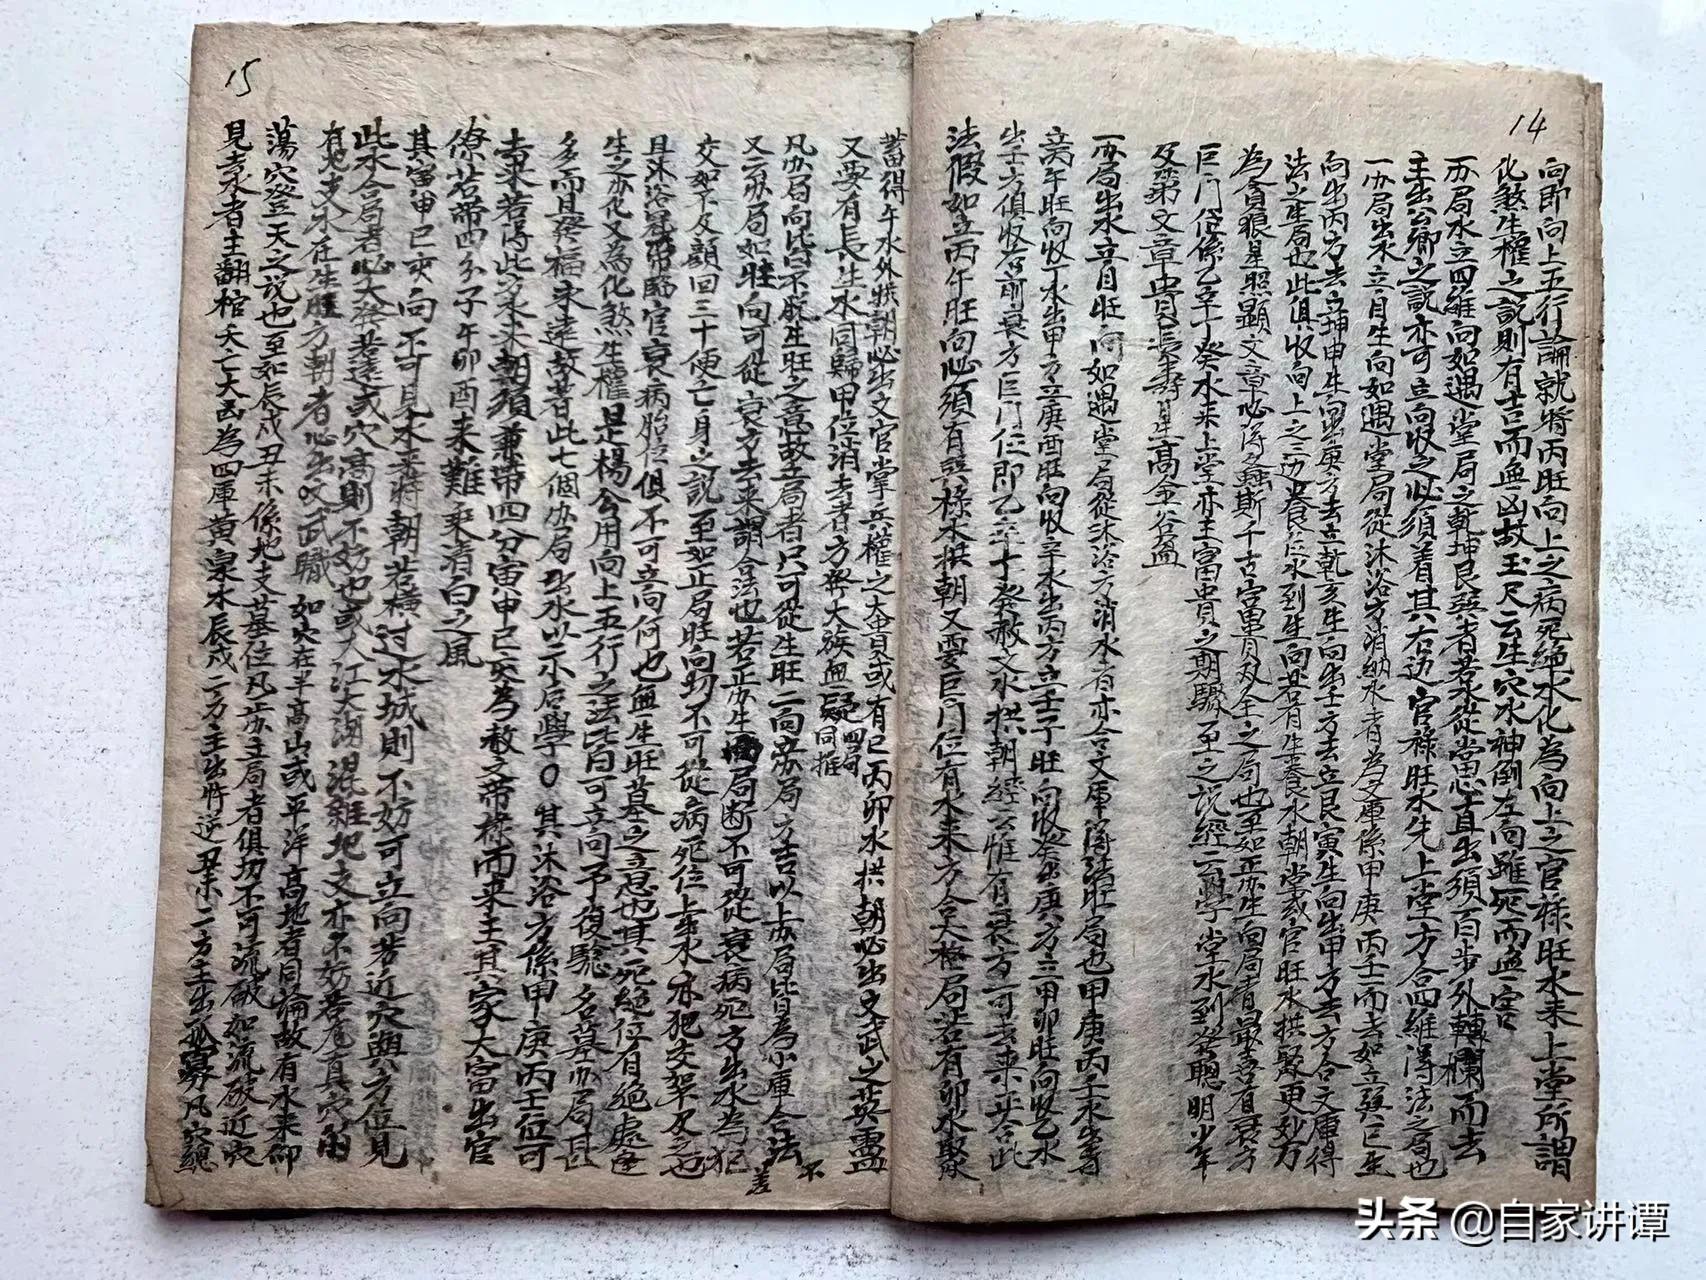 14
向即向上五行論就將丙旺向上之病死絕水化為向上之官祿旺水来上堂所謂
化煞生權之說則有吉而無凶故玉尺云生穴水神倒左向雖死而無害
亦局水立四維向如遇堂局之乾坤艮巽者若水從當心直出須百步外轉欄而去
主出公卿之說亦可立向收之必須着其右边官祿旺水先上堂方合四維得法之局也
一亦局出水立自生向如遇堂局從沐浴方消納水者為文庫係甲庚丙壬而去如立巽巳生
向出丙方去立坤申生向出庚方去立乾亥生向出壬方去立艮寅生向出甲方去方合文庫得
法之生局也此俱收向上之三边養位水到生向若有生養水朝堂或官旺水拱聚更妙乃
為貪狼星照顯文章必得螽斯千古富貴双全之局也至如正亦生向局者最喜有衰方
巨門位係乙辛丁癸水来上堂亦主富貴之期驟至之說經云學堂水到發聰明少年
及第文章貴長壽星高金谷盈
一亦局出水立自旺向如遇堂局從沐浴方消水者亦合文庫消諸旺局也甲庚丙壬水出者
立丙午旺向收丁水出甲方立庚酉旺向收辛水出丙方立壬子旺向收癸水出庚方立甲卯旺向收乙水
出壬方俱收合前衰方巨門位即乙辛丁癸赦文水拱朝經云惟有衰方可去来正合此
法假如立丙午旺向必須有巽祿水拱朝又要巨門位有水来方合大格局若有卯水聚
15
蓄得午水外拱朝必出文官掌兵權之大貴或有巳丙卯水拱朝必出文武之英靈
又要有長生水同歸甲位消去者方發大族無疑四局同推
凡亦局向皆不脫生旺之意故立局者只可從生旺二向立亦局方吉以上亦局皆為小庫合法不
又云亦局如旺向可從衰方去来謂合法也若正亦生向局断不可從衰病死方出水為犯差
交如不及顏回三十便亡身之說至如正局旺向切不可從病死位上出水亦犯交如不及之也
且沐浴冠帶臨官衰病胎位俱不可立向何也無生旺墓之意也其死絕位有絕處逢
生之亦化又為化煞生權是楊公用向上五行之法皆可立向予復驗名墓亦局甚
多而且發福未達故者此七個亦局出水以示后學〇其沐浴方係甲庚丙壬位可
去来若得此方水来朝須兼帶四分寅申巳亥為赦文帶祿而来主其家大富出官
僚若帶四分子午卯酉来難乘清白之風
其寅申巳亥向不可見水来特朝若橫过水城則不妨可立向若近穴與方位見
此水合局者必大發若遠或穴高則不妨也或大江大湖混雜地支亦不妨若龙真穴的
有地支水在生旺方朝者必出文武職如穴在半高山或平洋高地者同論故有水来仰
蕩穴登天之說也至如辰戌丑未係地支墓位凡亦主局者俱切不可流破如流破近穴
見去来者主翻棺夭亡大凶為四庫黃泉水辰戌二方主出忤逆丑未二方主出孤寡凡穴總
头条 @自家讲谭